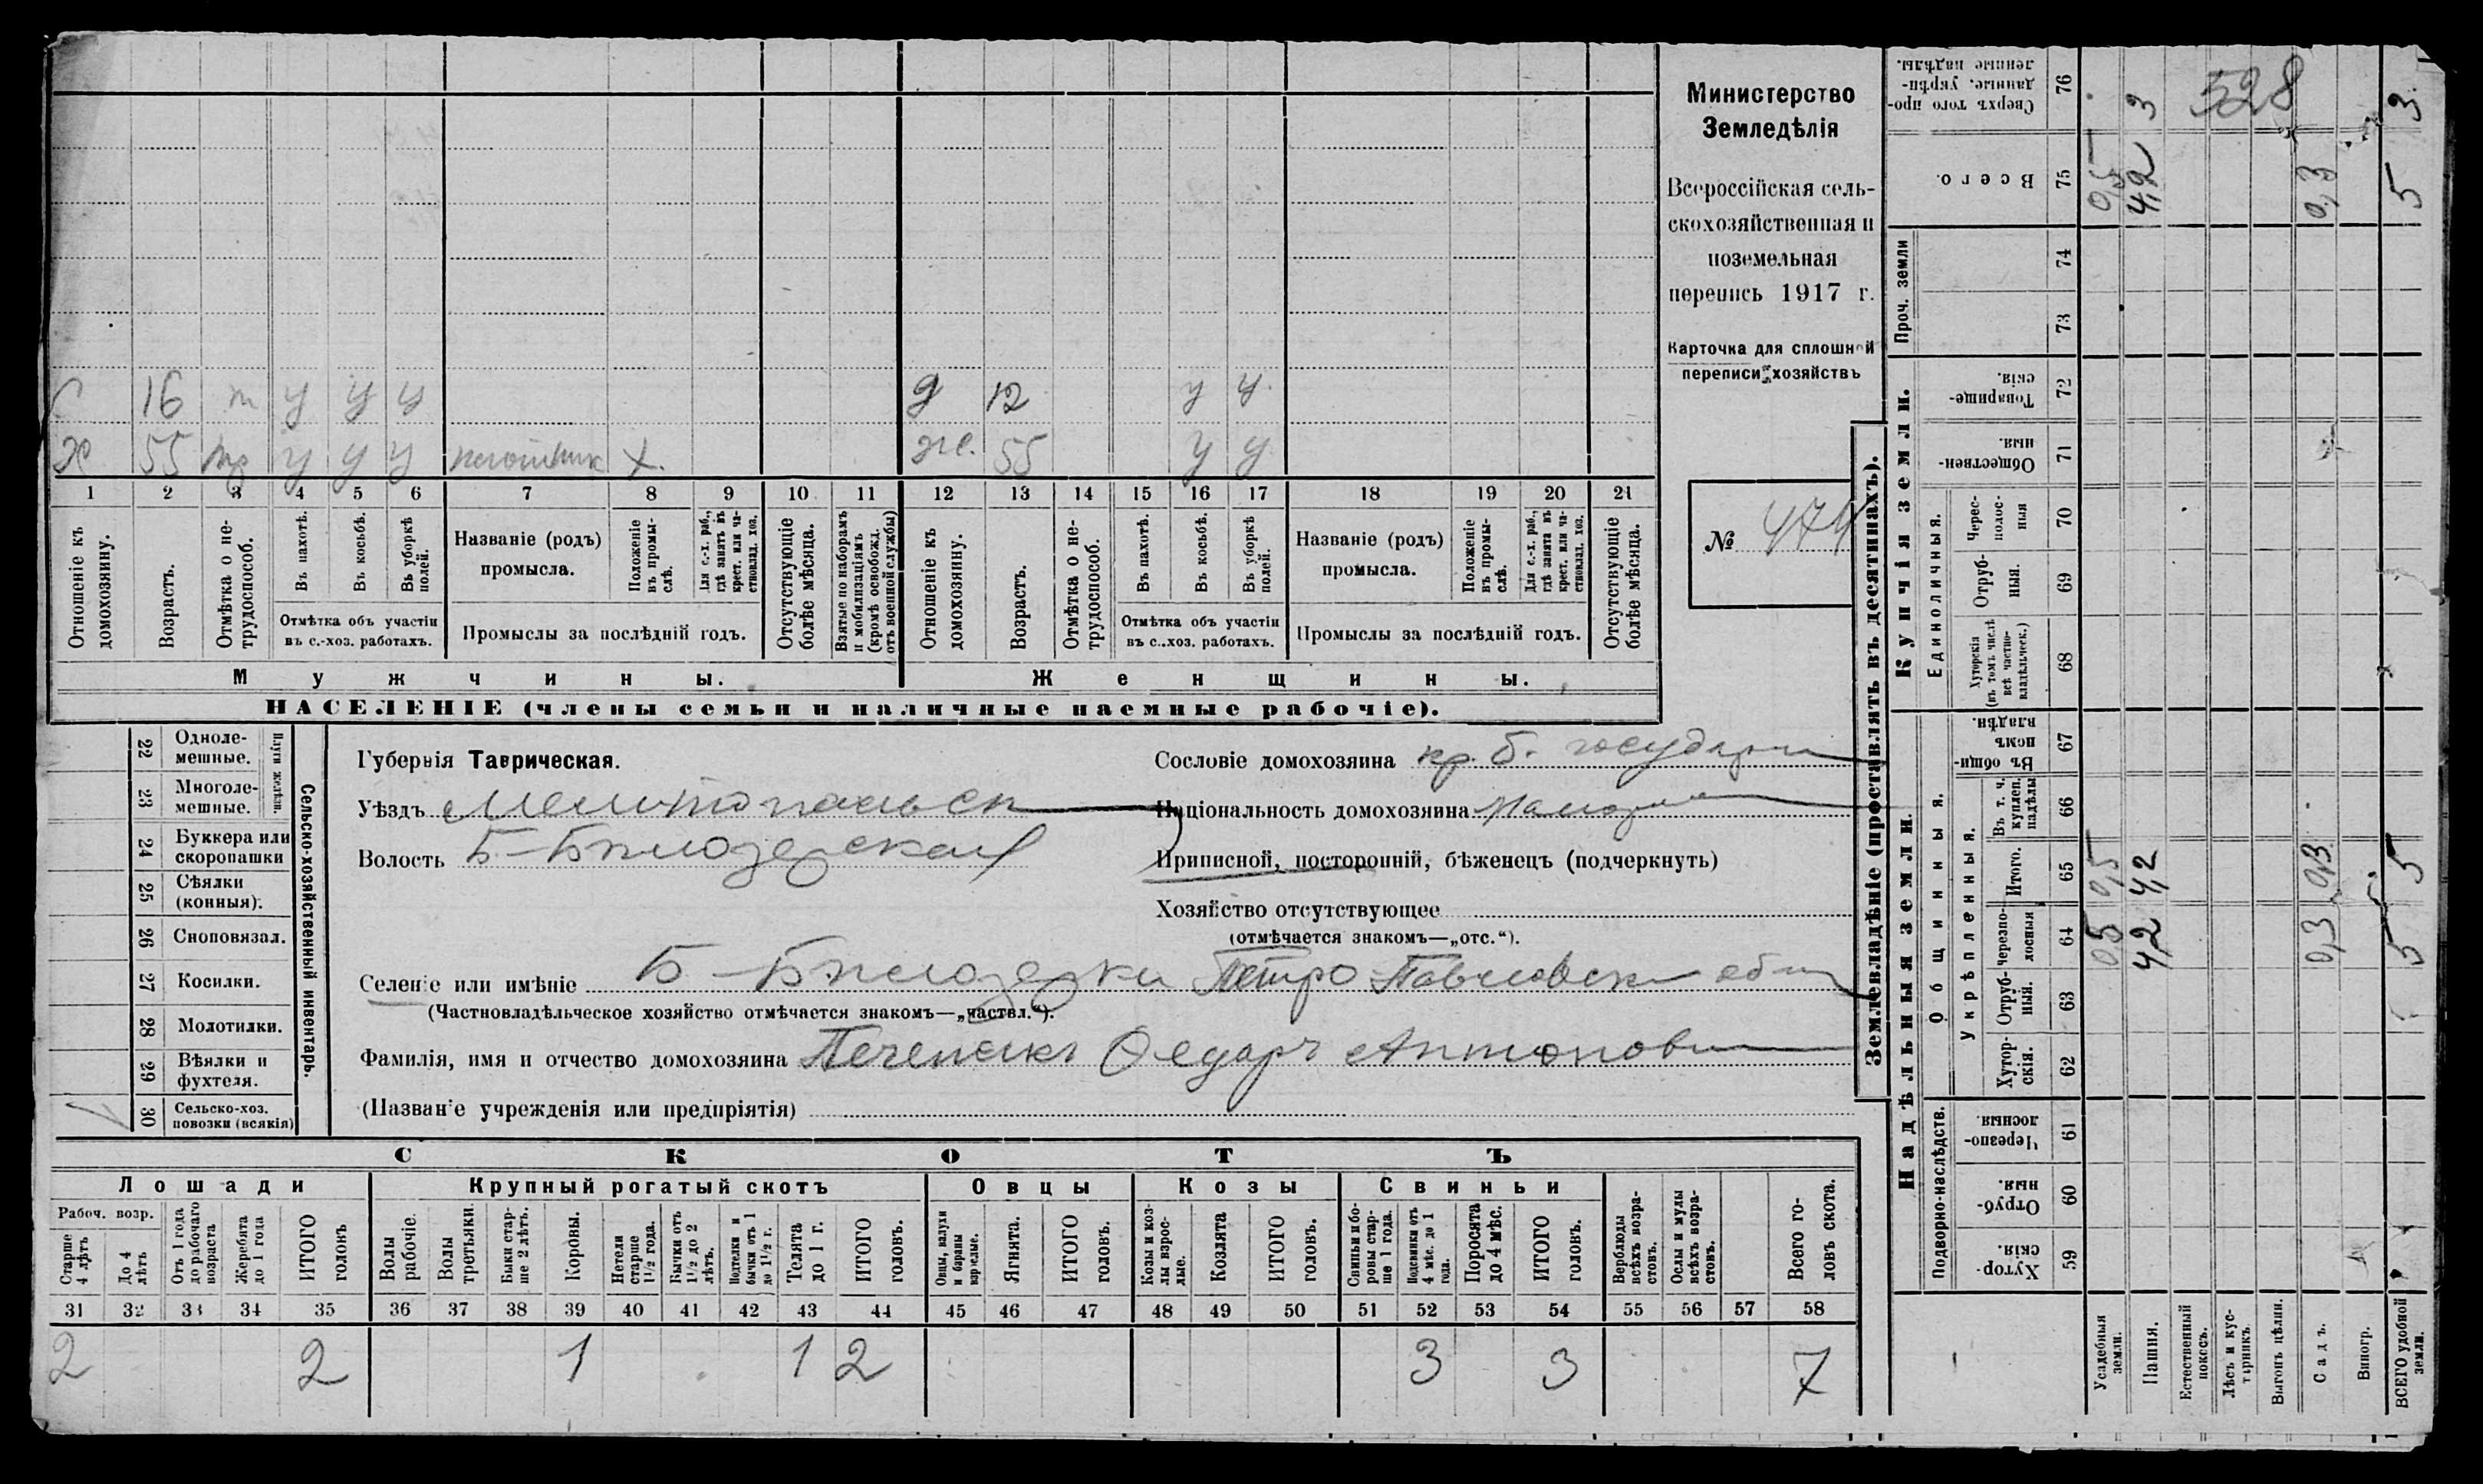 Министерство
Земледѣлія
Всероссійская сель-
скохозяйственная и
поземельная
перепись 1917 г.
Карточка для сплошной
переписи хозяйствъ
№ 474
С 16 т у у у
Х 55 тр у у у х.
д 12 у у
ж. 55 у у
1 2 3 4 5 6 7 8 9 10 11 12 13 14 15 16 17 18 19 20 21
Отношеніе къ домохозяину.
Возрастъ.
Отмѣтка о не-трудоспособ.
Въ пахотѣ.
Въ косьбѣ.
Въ уборкѣ полей.
Отмѣтка объ участіи
въ с.-хоз. работахъ.
Названіе (родъ)
промысла.
Положеніе въ промы-слѣ.
Для с.-х. раб., гдѣ занятъ въ крест. или ча-стновлад. хоз.
Промыслы за послѣдній годъ.
Отсутствующіе болѣе мѣсяца.
Взятые по наборамъ и мобилизаціямъ (кромѣ освобожд. отъ военной службы)
Отношеніе къ домохозяину.
Возрастъ.
Отмѣтка о не-трудоспособ.
Въ пахотѣ.
Въ косьбѣ.
Въ уборкѣ полей.
Отмѣтка объ участіи
въ с..хоз. работахъ.
Названіе (родъ)
промысла.
Положеніе въ промы-слѣ.
Для с.-х. раб., гдѣ занята въ крест. или ча-стновлад. хоз.
Промыслы за послѣдній годъ.
Отсутствующіе болѣе мѣсяца.
Мужчины.
Женщины.
НАСЕЛЕНІЕ (члены семьи и наличные наемные рабочіе).
Сельско-хозяйственный инвентарь.
Плуги желѣзн.
22 Одноле-мешные.
23 Многоле-мешные.
24 Буккера или скоропашки
25 Сѣялки (конныя).
26 Сноповязал.
27 Косилки.
28 Молотилки.
29 Вѣялки и фухтеля.
30 Сельско-хоз. повозки (всякія)
Губернія Таврическая.
Уѣздъ Мелитопольск
Волость Б-Бѣлозерская
Селеніе или имѣніе Б-Бѣлозерки Петро Павловск
(Частновладѣльческое хозяйство отмѣчается знакомъ—„частвл.“).
Фамилія, имя и отчество домохозяина Федоръ Антонов
(Названіе учрежденія или предпріятія)
Сословіе домохозяина кр. б. государ
Національность домохозяина малор
Приписной, посторонній, бѣженецъ (подчеркнуть)
Хозяйство отсутствующее
(отмѣчается знакомъ—„отс.“).
СКОТЪ
Лошади
Крупный рогатый скотъ
Овцы
Козы
Свиньи
Рабоч. возр.
Старше 4 лѣтъ
До 4 лѣтъ
Отъ 1 года до рабочаго возраста
Жеребята до 1 года
ИТОГО головъ
Волы рабочіе.
Волы третьяки.
Быки стар-ше 2 лѣтъ.
Коровы.
Нетели старше 1½ года.
Бычки отъ 1½ до 2 лѣтъ.
Подтелки и бычки отъ 1 до 1½ г.
Телята до 1 г.
ИТОГО головъ.
Овцы, валухи и бараны взрослые.
Ягнята.
ИТОГО головъ.
Козы и коз-лы взрос-лые.
Козлята
ИТОГО головъ.
Свиньи и бо-ровы стар-ше 1 года.
Подсвинки отъ 4 мѣс. до 1 года.
Поросята до 4 мѣс.
ИТОГО головъ.
Верблюды всѣхъ возра-стовъ.
Ослы и мулы всѣхъ возра-стовъ.
Всего го-ловъ скота.
31 32 33 34 35 36 37 38 39 40 41 42 43 44 45 46 47 48 49 50 51 52 53 54 55 56 57 58
2 2 1 1 2 3 3 7
Землевладѣніе (проставлять въ десятинахъ).
Надѣльныя земли.
Купчія земли.
Проч. земли
Подворно-наслѣдств.
Общинныя.
Укрѣпленныя.
Единоличныя.
Хутор-скія. 59
Отруб-ныя. 60
Черезпо-лосныя 61
Хутор-скія. 62
Отруб-ныя. 63
черезпо-лосныя 64
Итого. 65
Въ т. ч. куплен. надѣлы 66
Въ общин-номъ владѣн. 67
Хуторскія (въ томъ числѣ всѣ частно-владѣльческ.) 68
Отруб-ныя. 69
Черес-полос-ныя 70
Обществен-ныя. 71
Товарище-скія. 72
73
74
Всего. 75
Сверхъ того про-данные, укрѣп-ленные надѣлы. 76
Усадебныя земли. 0,5 0,5 0,5
Пашня. 4,2 4,2 4,2 3
Естественный покосъ.
Лѣсъ и кус-тарникъ.
Выгонъ цѣлин.
Садъ. 0,3 0,3 0,3
Виногр.
ВСЕГО удобной земли. 5 5 5 3
528